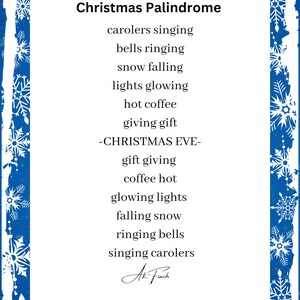 Christmas Palindrome
carolers singing
bells ringing
snow falling
lights glowing
hot coffee
giving gift
-CHRISTMAS EVE-
gift giving
coffee hot
glowing lights
falling snow
ringing bells
singing carolers